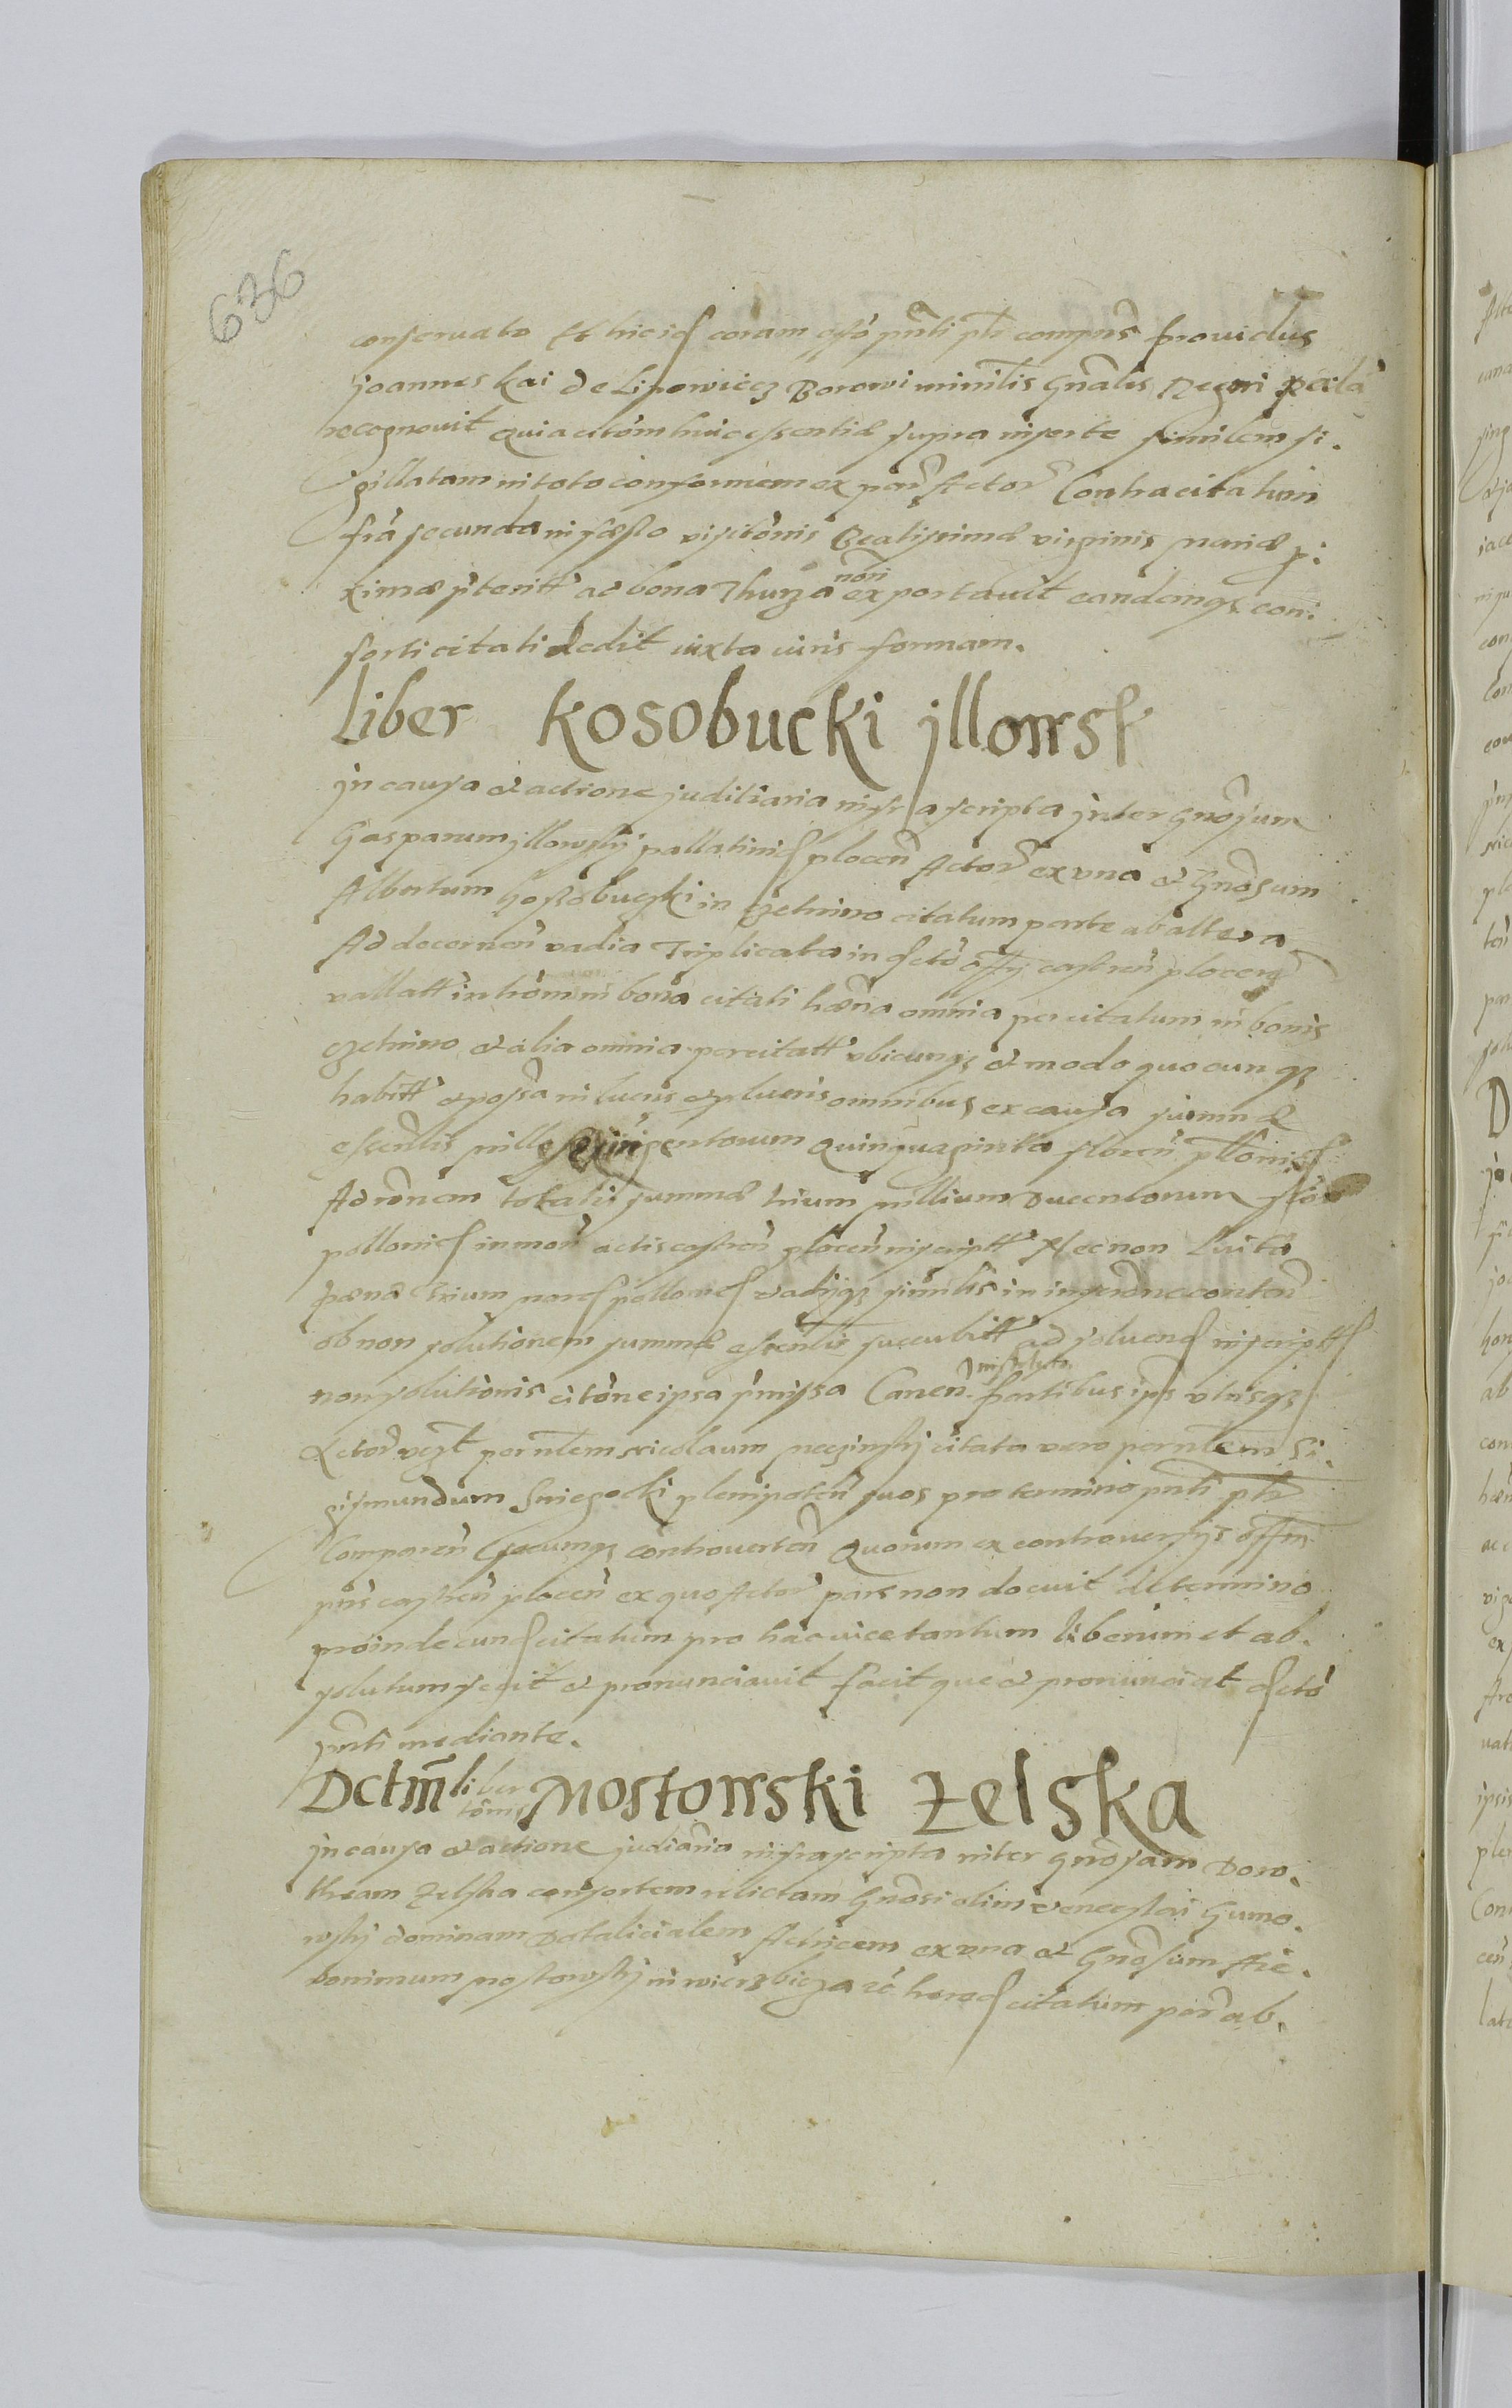 636
conservato Et hicid coram offo pnti ptr compns providus
joannes kai de Lipowiecz Borowi ministlis Gnalis Regni
recognovit Quia citom huic essentiæ supra inserte similem si.
gillatam in toto conformem ex par Actor Contra citatum
fra secunda in festo visitonis Beatissimæ virginis Mariæ p.
ximæ pteritt ad bona Thurza non exportavit eandemq con.
sorti citati dedit iuxta iuris formam.
Liber Kosobucki jllowsk
jn causa et actione juditiaria infrascripta jnter Gnosum
Gasparum jllowskij pallatinid plocen Actor ex una et Gnosum
Albertum Gosobuczki in Czetnino citatum parte ab altera
Ad decernen vadia Triplicata in Acto offij castren plocen
vallatt introm in bona citati hæna omnia per citatum in bonis
czetnino et alia omnia percitatt ubicunq et modo quocunq
habitt et possa in lucris et plucris omnibus ex causa summæ
essentlis mille Quingentorum Quinquaginta floren plonid
Ad ronem totalis summæ trium millium ducentorum flor
pollonid in mon actis castren plocen inscriptt Necnon Luito
pæna trium mard pollonid vadijq similis in inscrone conten
ob non solutionem summæ essentlis succubitt ad solvend inscriptt
non solutionis citone ipsa pmissa Canen. insoluto. Partibus ips utrisq
Actor vezt pernlem Nicolaum Meczinskij citata vero pernlem Si.
gismundum Sniegocki plenipoten suos pro termino pnti ptr
Comparen Gsecumq controverten Quorum ex controversijs offm
pns castren plocen ex quo Actor pars non docuit de termino
proinde eund citatum pro hac vice tantum liberum et ab.
solutum fecit et pronunciavit facit que et pronunciat Acto
pnti mediante.
Dctm liber
tonis Mostowski Zelska
jn causa et actione judiaria infrascripta inter Gnosam Doro.
theam Zelska consortem relictam Gnosi olim venceslai Gumo.
wskij dominam Dotalicialem Actricem ex una et Gnosum Hie.
ronimum Mostowskij in wierzbicza ec hered citatum par ab.